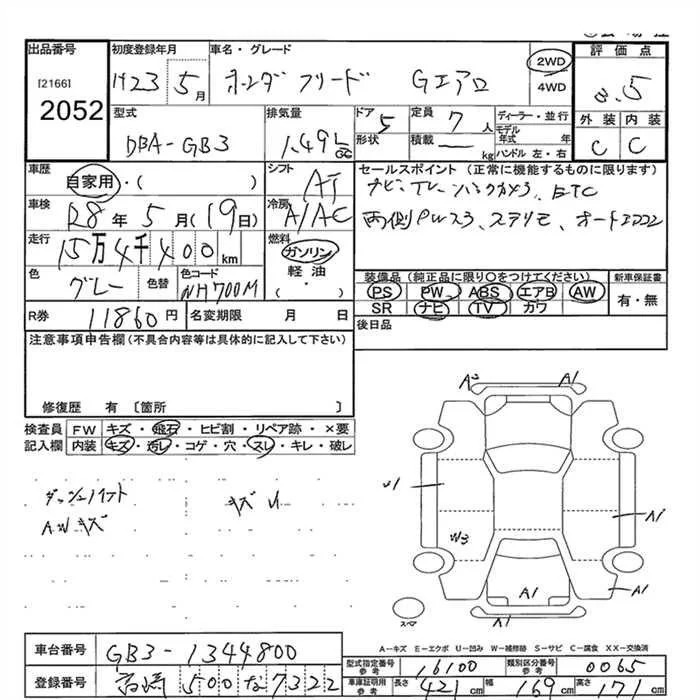 出品番号 初度登録年月 車名・グレード 評価点
[2166] H23 5月 ホンダ フリード Gエアロ 2WD 3.5
2052 4WD
型式 排気量 ドア 定員 ディーラー・並行 外装 内装
DBA-GB3 1.49L cc 5 7人 モデル年式 年
形状 積載 ― kg ハンドル 左・右 C C
車歴 自家用・( ) シフト AT セールスポイント(正常に機能するものに限ります)
ナビ、TV、バックカメラ、ETC
車検 28年 5月(19日) 冷房 A/AC 両側PWスラ、ステリモ、オートエアコン
走行 15万4千400km 燃料 ガソリン
軽油・( )
色 グレー 色替 色コード NH700M
装備品(純正品に限り〇をつけてください) 新車保証書
PS PW ABS エアB AW 有・無
SR ナビ TV カワ
R券 11860円 名変期限 月 日 後日品
注意事項申告欄(不具合内容等は具体的に記入して下さい)
修復歴 有 〔箇所 〕
検査員 FW キズ・飛石・ヒビ割・リペア跡・×要
記入欄 内装 キズ・汚レ・コゲ・穴・スレ・キレ・破レ
A2 A1
ダッシュハゲフト キズ U
AW キズ
U1 A1
W3
A1 A1
スペア
A1
A―キズ E―エクボ U―凹み W―補修跡 S―サビ C―腐食 XX―交換済
車台番号 GB3-1344800
型式指定番号 参考 16100 類別区分番号 参考 0065
登録番号 高崎 500 な 7322
車庫証明用 参考 長さ 421cm 幅 169cm 高さ 171cm